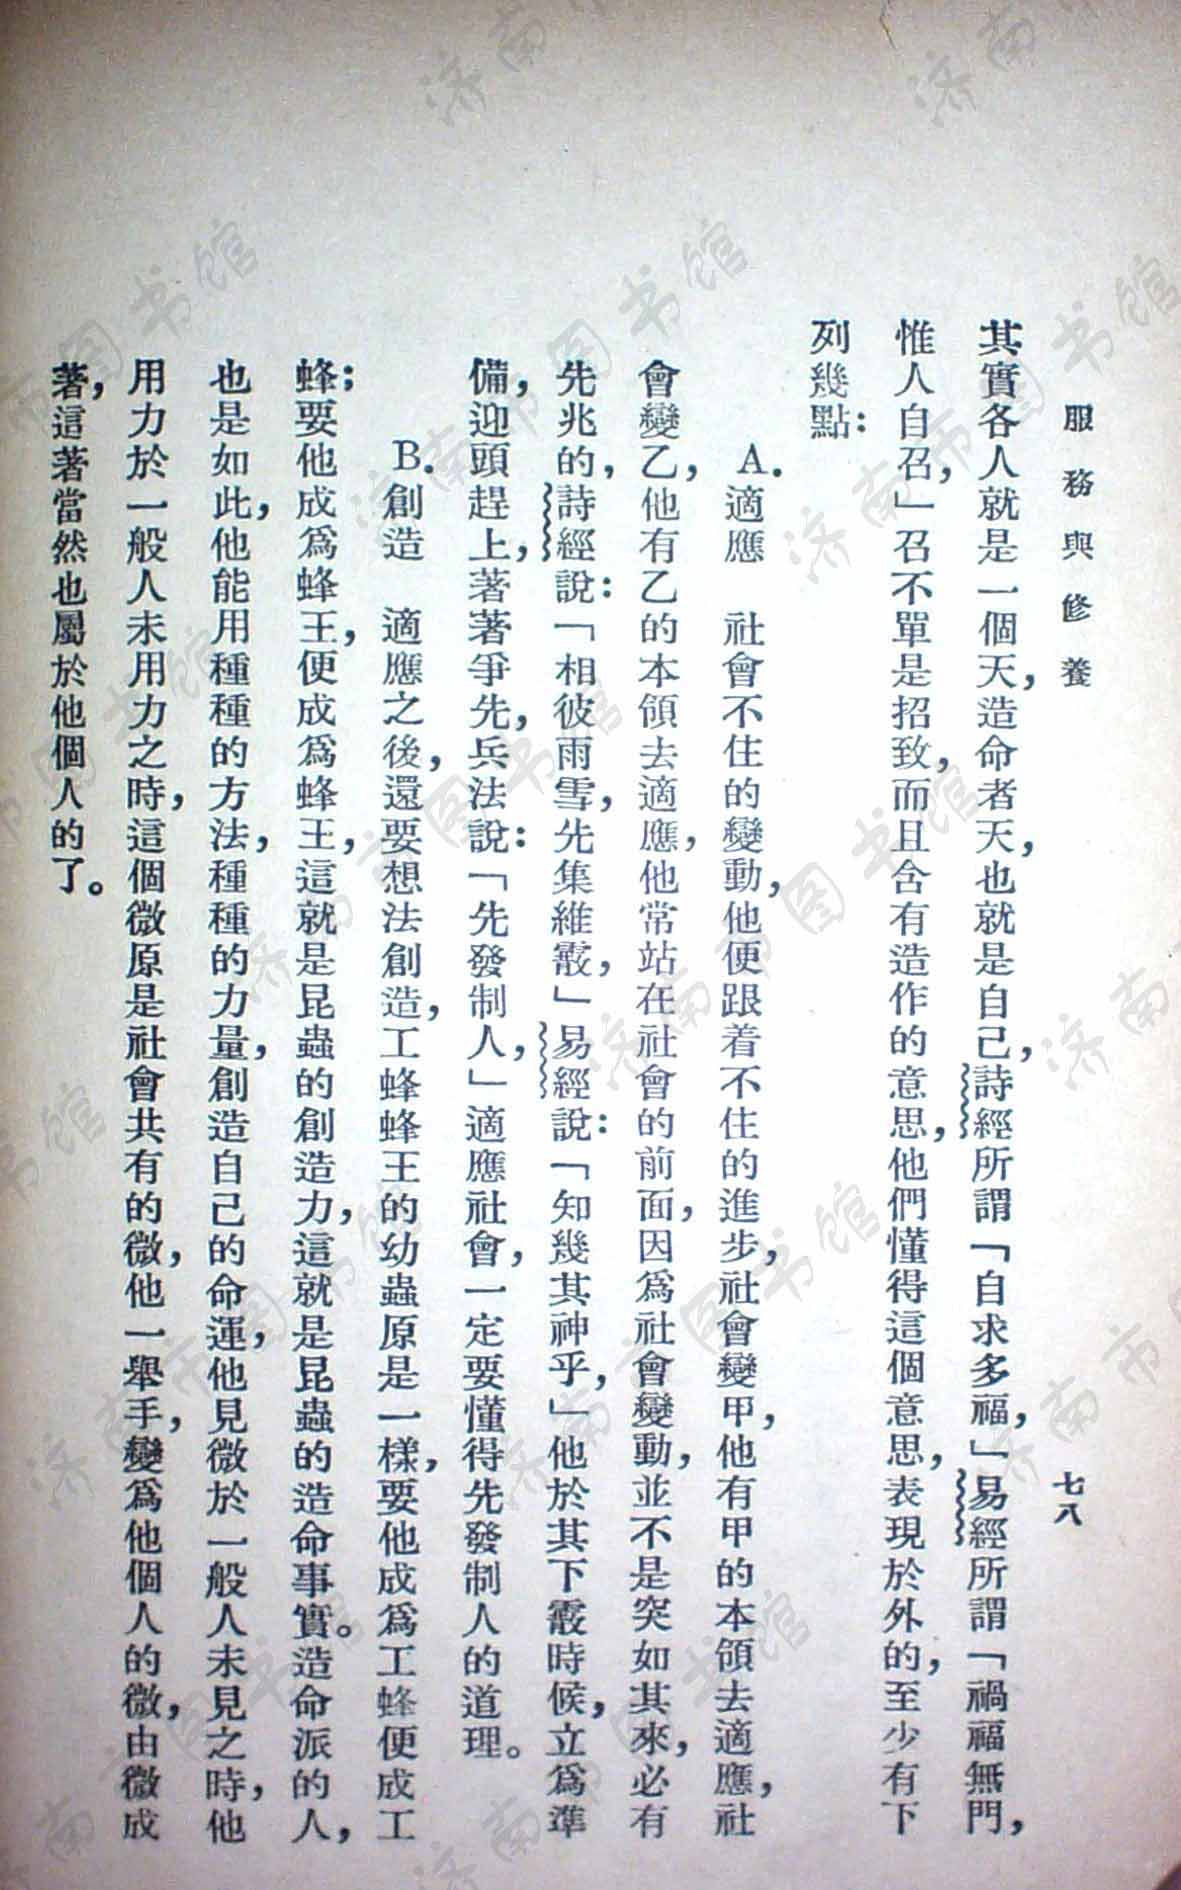 服務與修養
七八
其實各人就是一個天,造命者天,也就是自己,詩經所謂「自求多福,」易經所謂「禍福無門,
惟人自召,」召不單是招致,而且含有造作的意思,他們懂得這個意思,表現於外的,至少有下
列幾點:
A.適應 社會不住的變動,他便跟着不住的進步,社會變甲,他有甲的本領去適應,社
會變乙,他有乙的本領去適應,他常站在社會的前面,因爲社會變動,並不是突如其來,必有
先兆的,詩經說:「相彼雨雪,先集維霰,」易經說:「知幾其神乎,」他於其下霰時候,立爲準
備,迎頭趕上,著著爭先,兵法說:「先發制人,」適應社會,一定要懂得先發制人的道理。
B.創造 適應之後,還要想法創造,工蜂蜂王的幼蟲原是一樣,要他成爲工蜂便成工
蜂;要他成爲蜂王,便成爲蜂王,這就是昆蟲的創造力,這就是昆蟲的造命事實。造命派的人,
也是如此,他能用種種的方法,種種的力量,創造自己的命運,他見微於一般人未見之時,他
用力於一般人未用力之時,這個微原是社會共有的微,他一舉手,變爲他個人的微,由微成
著,這著當然也屬於他個人的了。
济南市图书馆